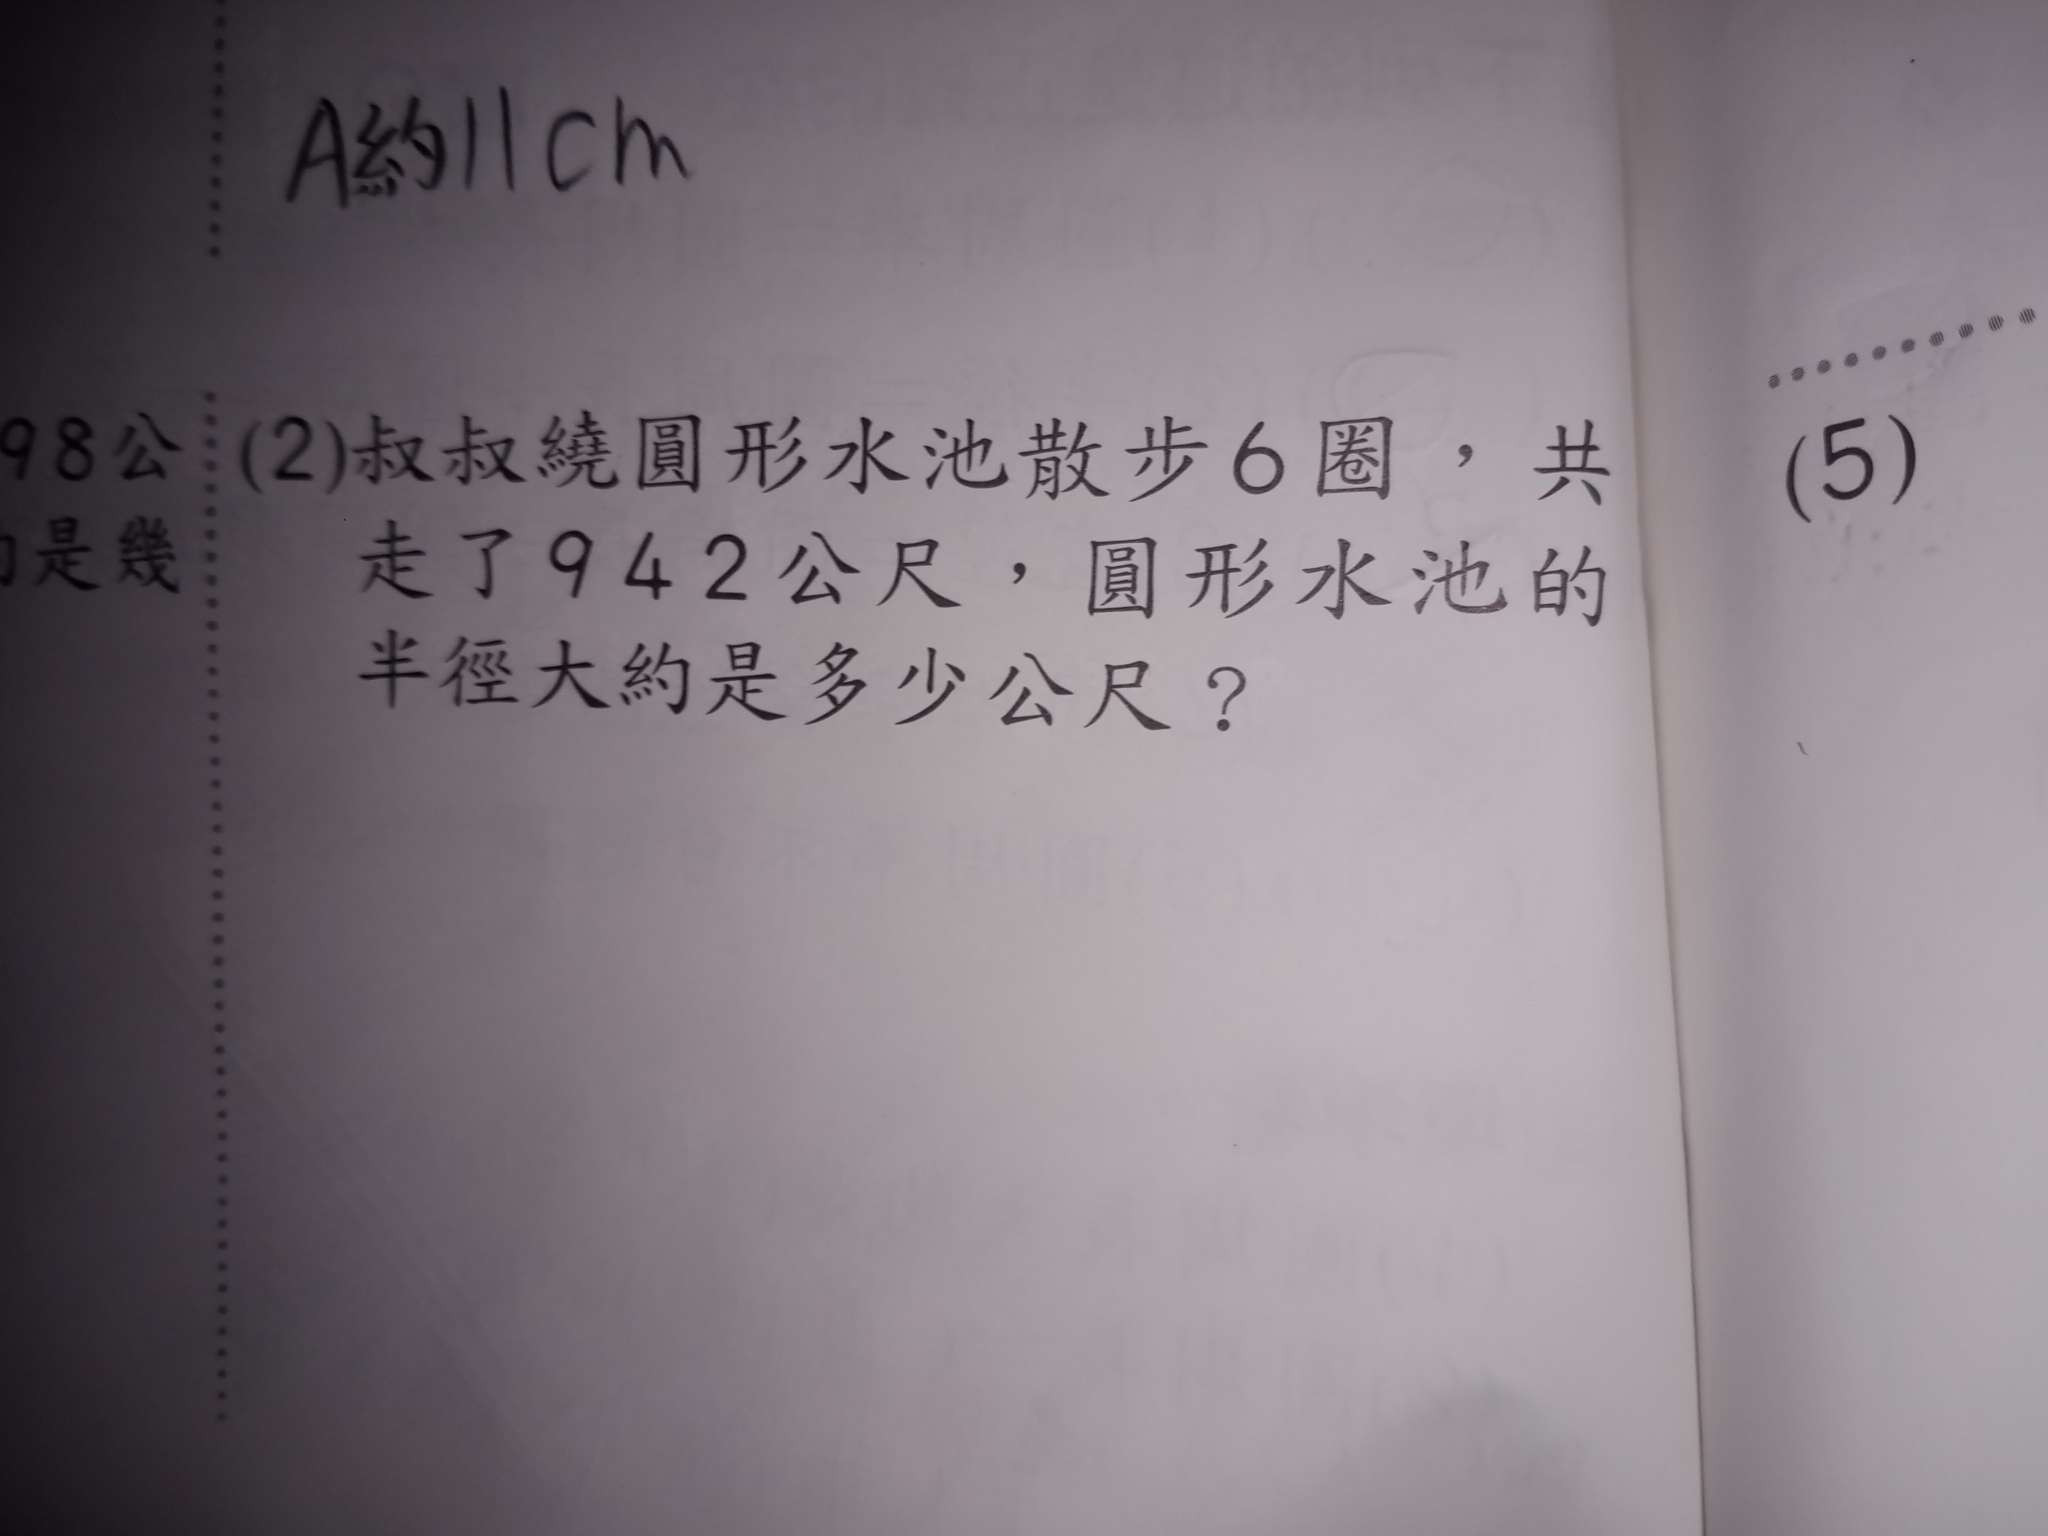 A約11cm
98公
是幾
(2)叔叔繞圓形水池散步6圈，共
走了942公尺，圓形水池的
半徑大約是多少公尺？
(5)